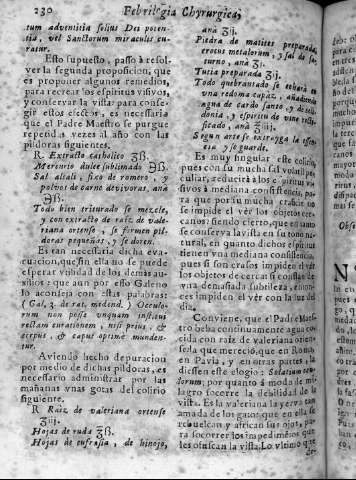 230 Febrilogia Chyrurgica,
tum adventitia solius Dei poten-
tia, vel Sanctorum miraculis cu-
ratur.
Esto supuesto, passo à resol-
ver la segunda proposicion, que
es proponer algunos remedios,
para recrear los espiritus visivos,
y conservar la vista para conse-
guir estos efectos, es necessaria
que el Padre Maestro se purgue
repetidas vezes al año con las
pildoras siguientes.
R. Extracto catholico ʒß.
Mercurio dulce sublimado ℈ß.
Sal altali, fixo de romero, y
polvos de carne de vivoras, ana
℈ß.
Todo bien triturado se mezcle,
y con extracto de raiz de vale-
riana ortense, se formen pil-
doras pequeñas, y se doren.
Es tan necessaria dicha eva-
cuacion, que sin ella no se puede
esperar utilidad de los demàs au-
xilios: que aun por esso Galeno
lo aconseja con estas palabras:
( Gal. 4. de rat. medend. ) Oculo-
rum non posse unquam institui
rectam curationem, nisi prius, &
corpus, & caput optime munden-
tur.
Aviendo hecho depuracion
por medio de dichas pildoras, es
necessario administrar por las
mañanas unas gotas del colirio
siguiente.
R Raiz de valeriana ortense
ʒiij.
Hojas de ruda ʒß.
Hojas de eufrasia, de hinojo,
ana ʒij.
Piedra de matites preparada,
crocus metalorum, y sal de sa-
turno, anà ʒj.
Tutia preparada ʒij.
Todo quebrantado se echarà en
una redoma capaz, añadiendo
agua de cardo santo, y de celi-
donia, y espiritu de vino recti-
ficado, anà ʒiiij.
Segun arte se extrayga la essen-
cia, y se guarde.
Es muy singular este colirio,
pues con su mucha sal volatil pe-
culiar, reducirà à los espiritus vi-
sivos à mediana consistencia, pa-
ra que por su mucha crasicie no
se impida el ver los objetos cer-
canos: siendo cierto, que en tanto
se conserva la vista en su tono na-
tural, en quanto dichos espiritus
tienen una mediana consistencia,
pues si son crasos impiden el ver
los objetos de cerca: si consisten de
una demasiada subtileza, enton-
ces impiden el vèr con la luz del
dia.
Conviene, que el Padre Maes-
tro beba continuamente agua co-
cida con raiz de valeriana orten-
se, la que mereciò, que en Roma,
en Pavia, y en otras partes, la
diessen este elogio: Solatium ocu-
lorum; por quanto à modo de mi-
lagro socorre la debilidad de la
vista. Es la valeriana la yerva tan
amada de los gatos, que en ella se
rebuelcan, y african sus ojos, pa-
ra socorrer los impedimentos que
les ofuscan la vista. Lo ultimo que